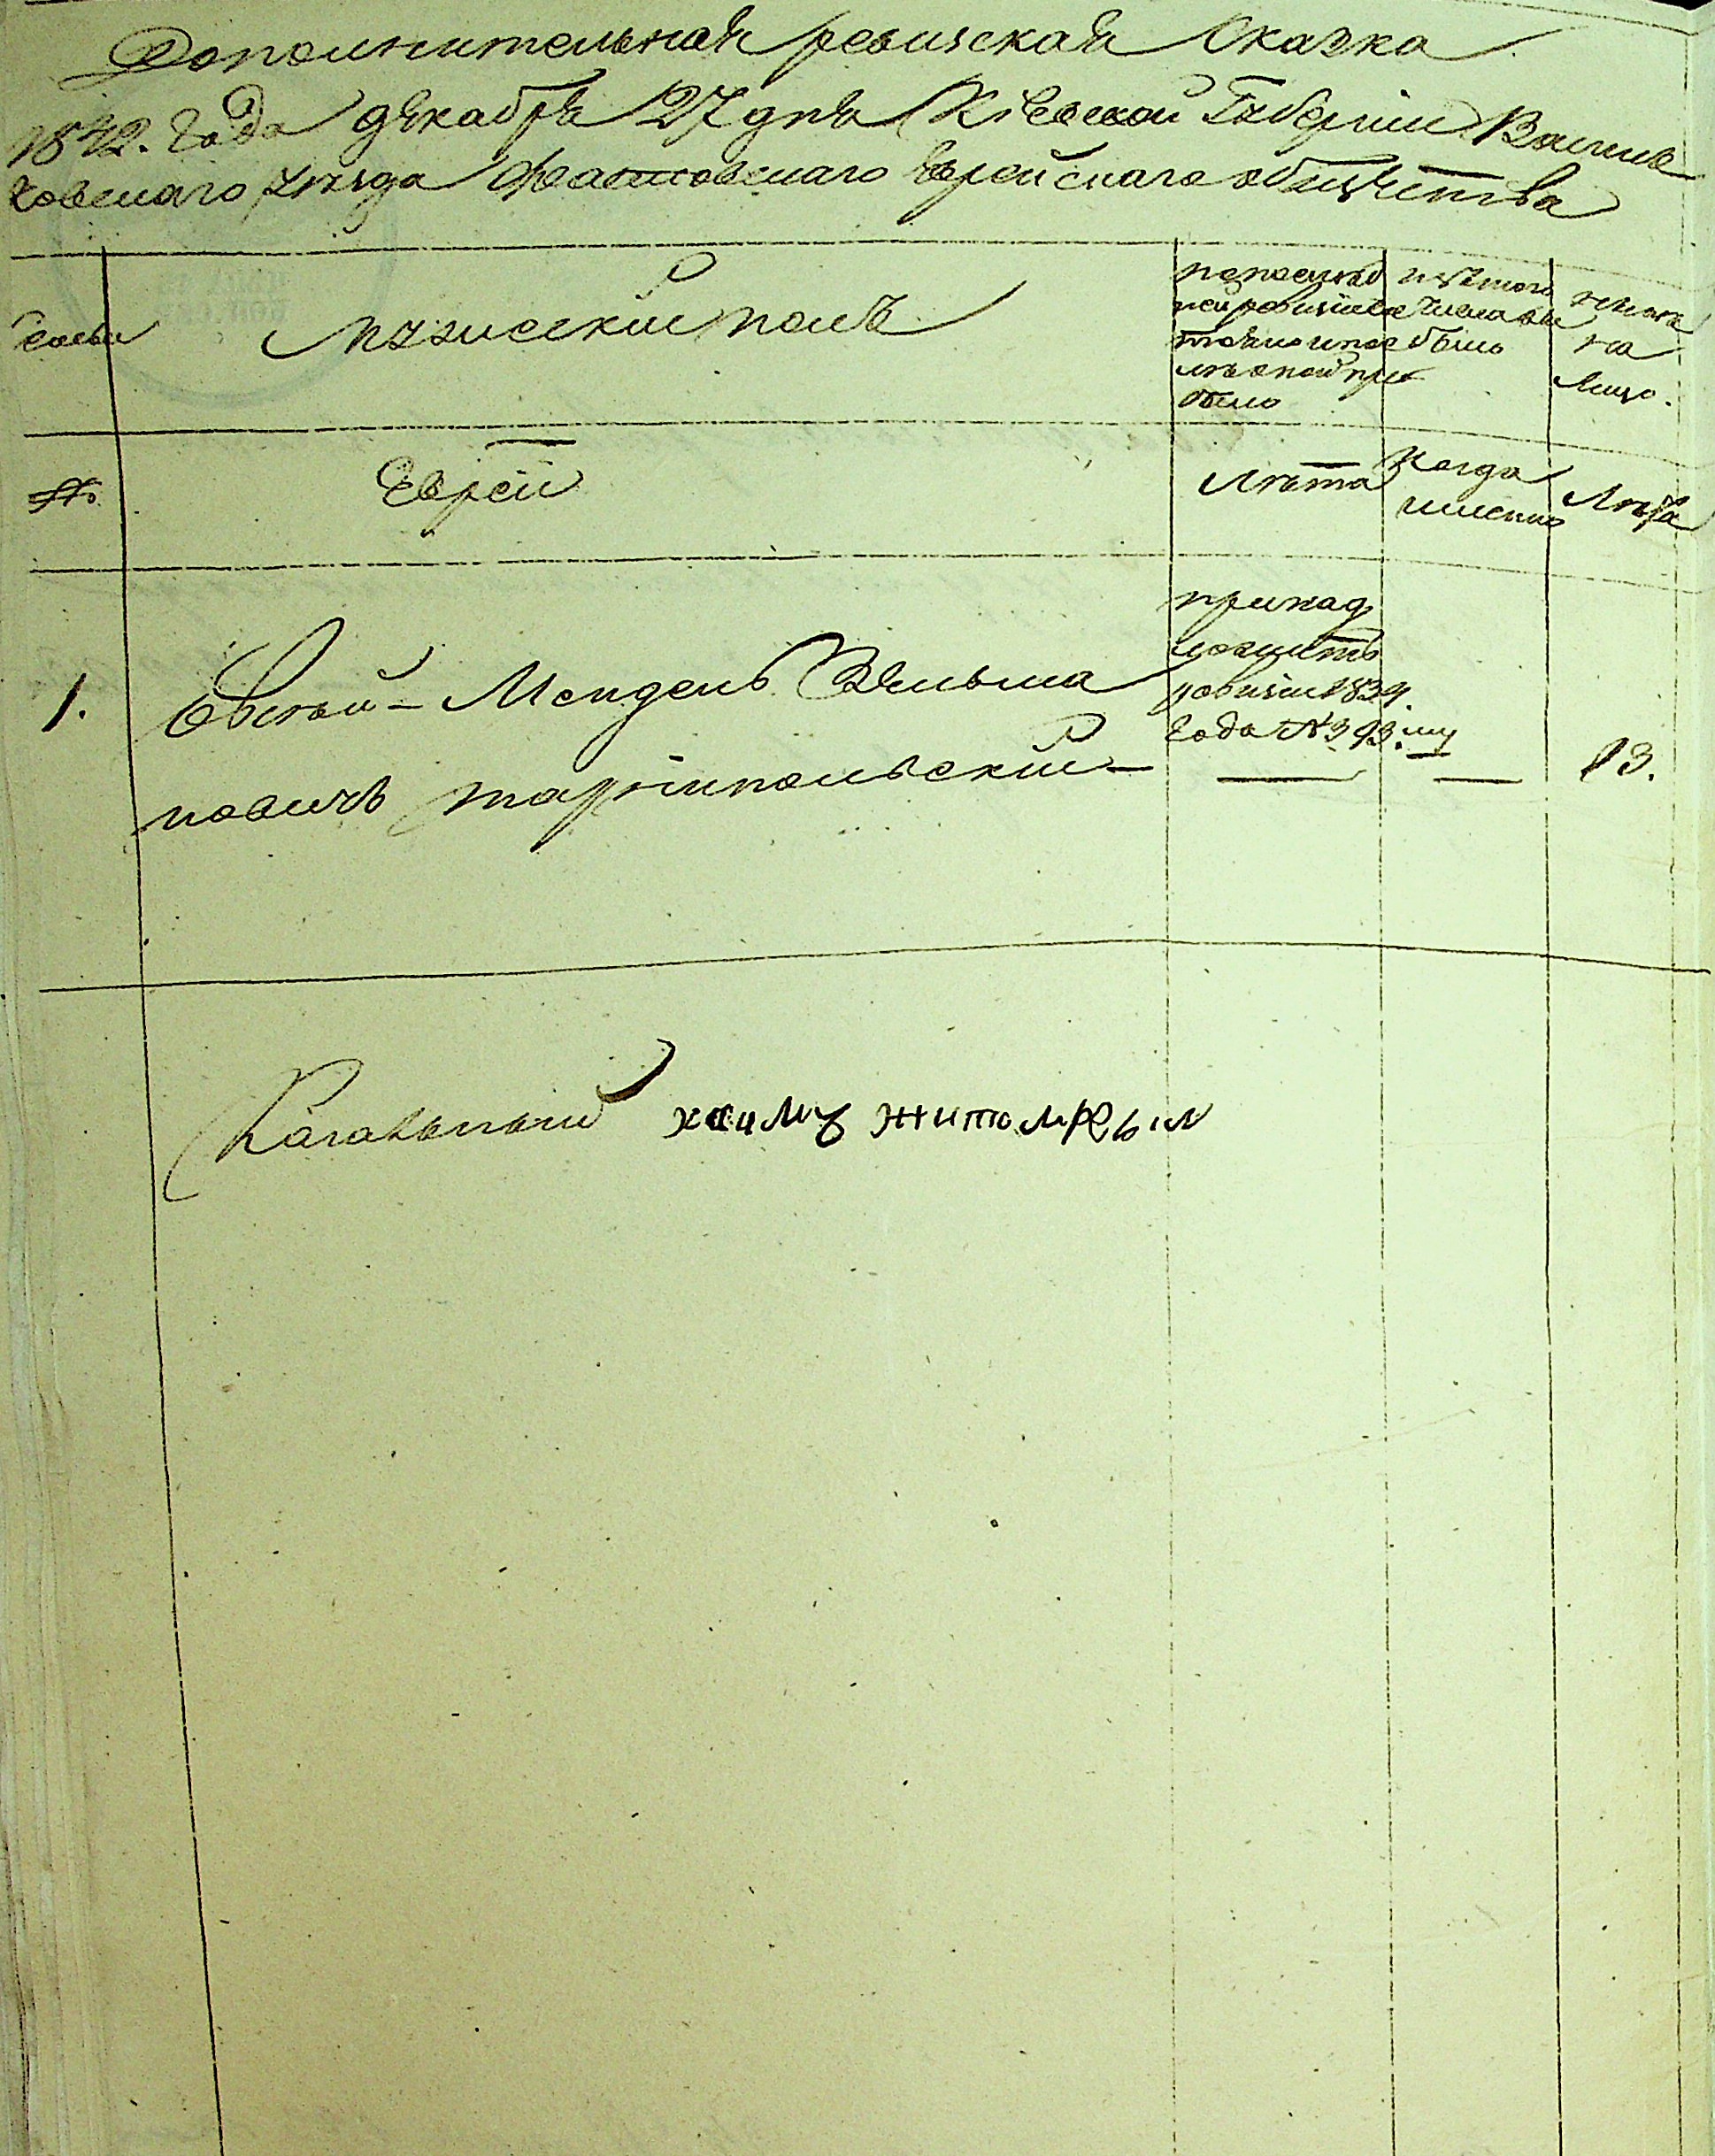 Дополнительная ревизская Сказка
1842. Года декабря 27 дня Кіевской Губерніи Василь
ковскаго уезда Фастовскаго Еврейскаго общества
Семьи
Мужескій полъ
по послед
ней ревизіи со
стояло и пос
ле оной при
было
изъ того
числа вы
было
ныне
на
лицо.
№.
Евреи
Лета
Когда
именно
Лета
1.
Овсей - Мендель Зельма
новичъ тарнопольскій
принад
лежитъ
ревизіи 1834.
Года №393.му
—
—
13.
Кагальный хаимъ житомирскій